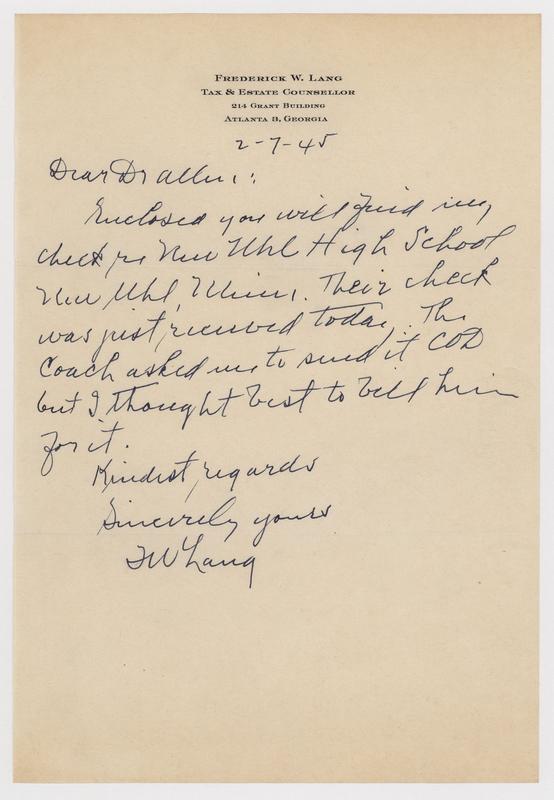 Frederick W. Lang
Tax & Estate Counsellor
214 Grant Building
Atlanta 3, Georgia
2-7-45
Dear Dr Allen,:
Enclosed you will find my
check re New Uhl High School
New Uhl, Minn. Their check
was just received today. The
Coach asked me to send it COD
but I thought best to bill him
for it.
Kindest regards
Sincerely yours
FW Lang